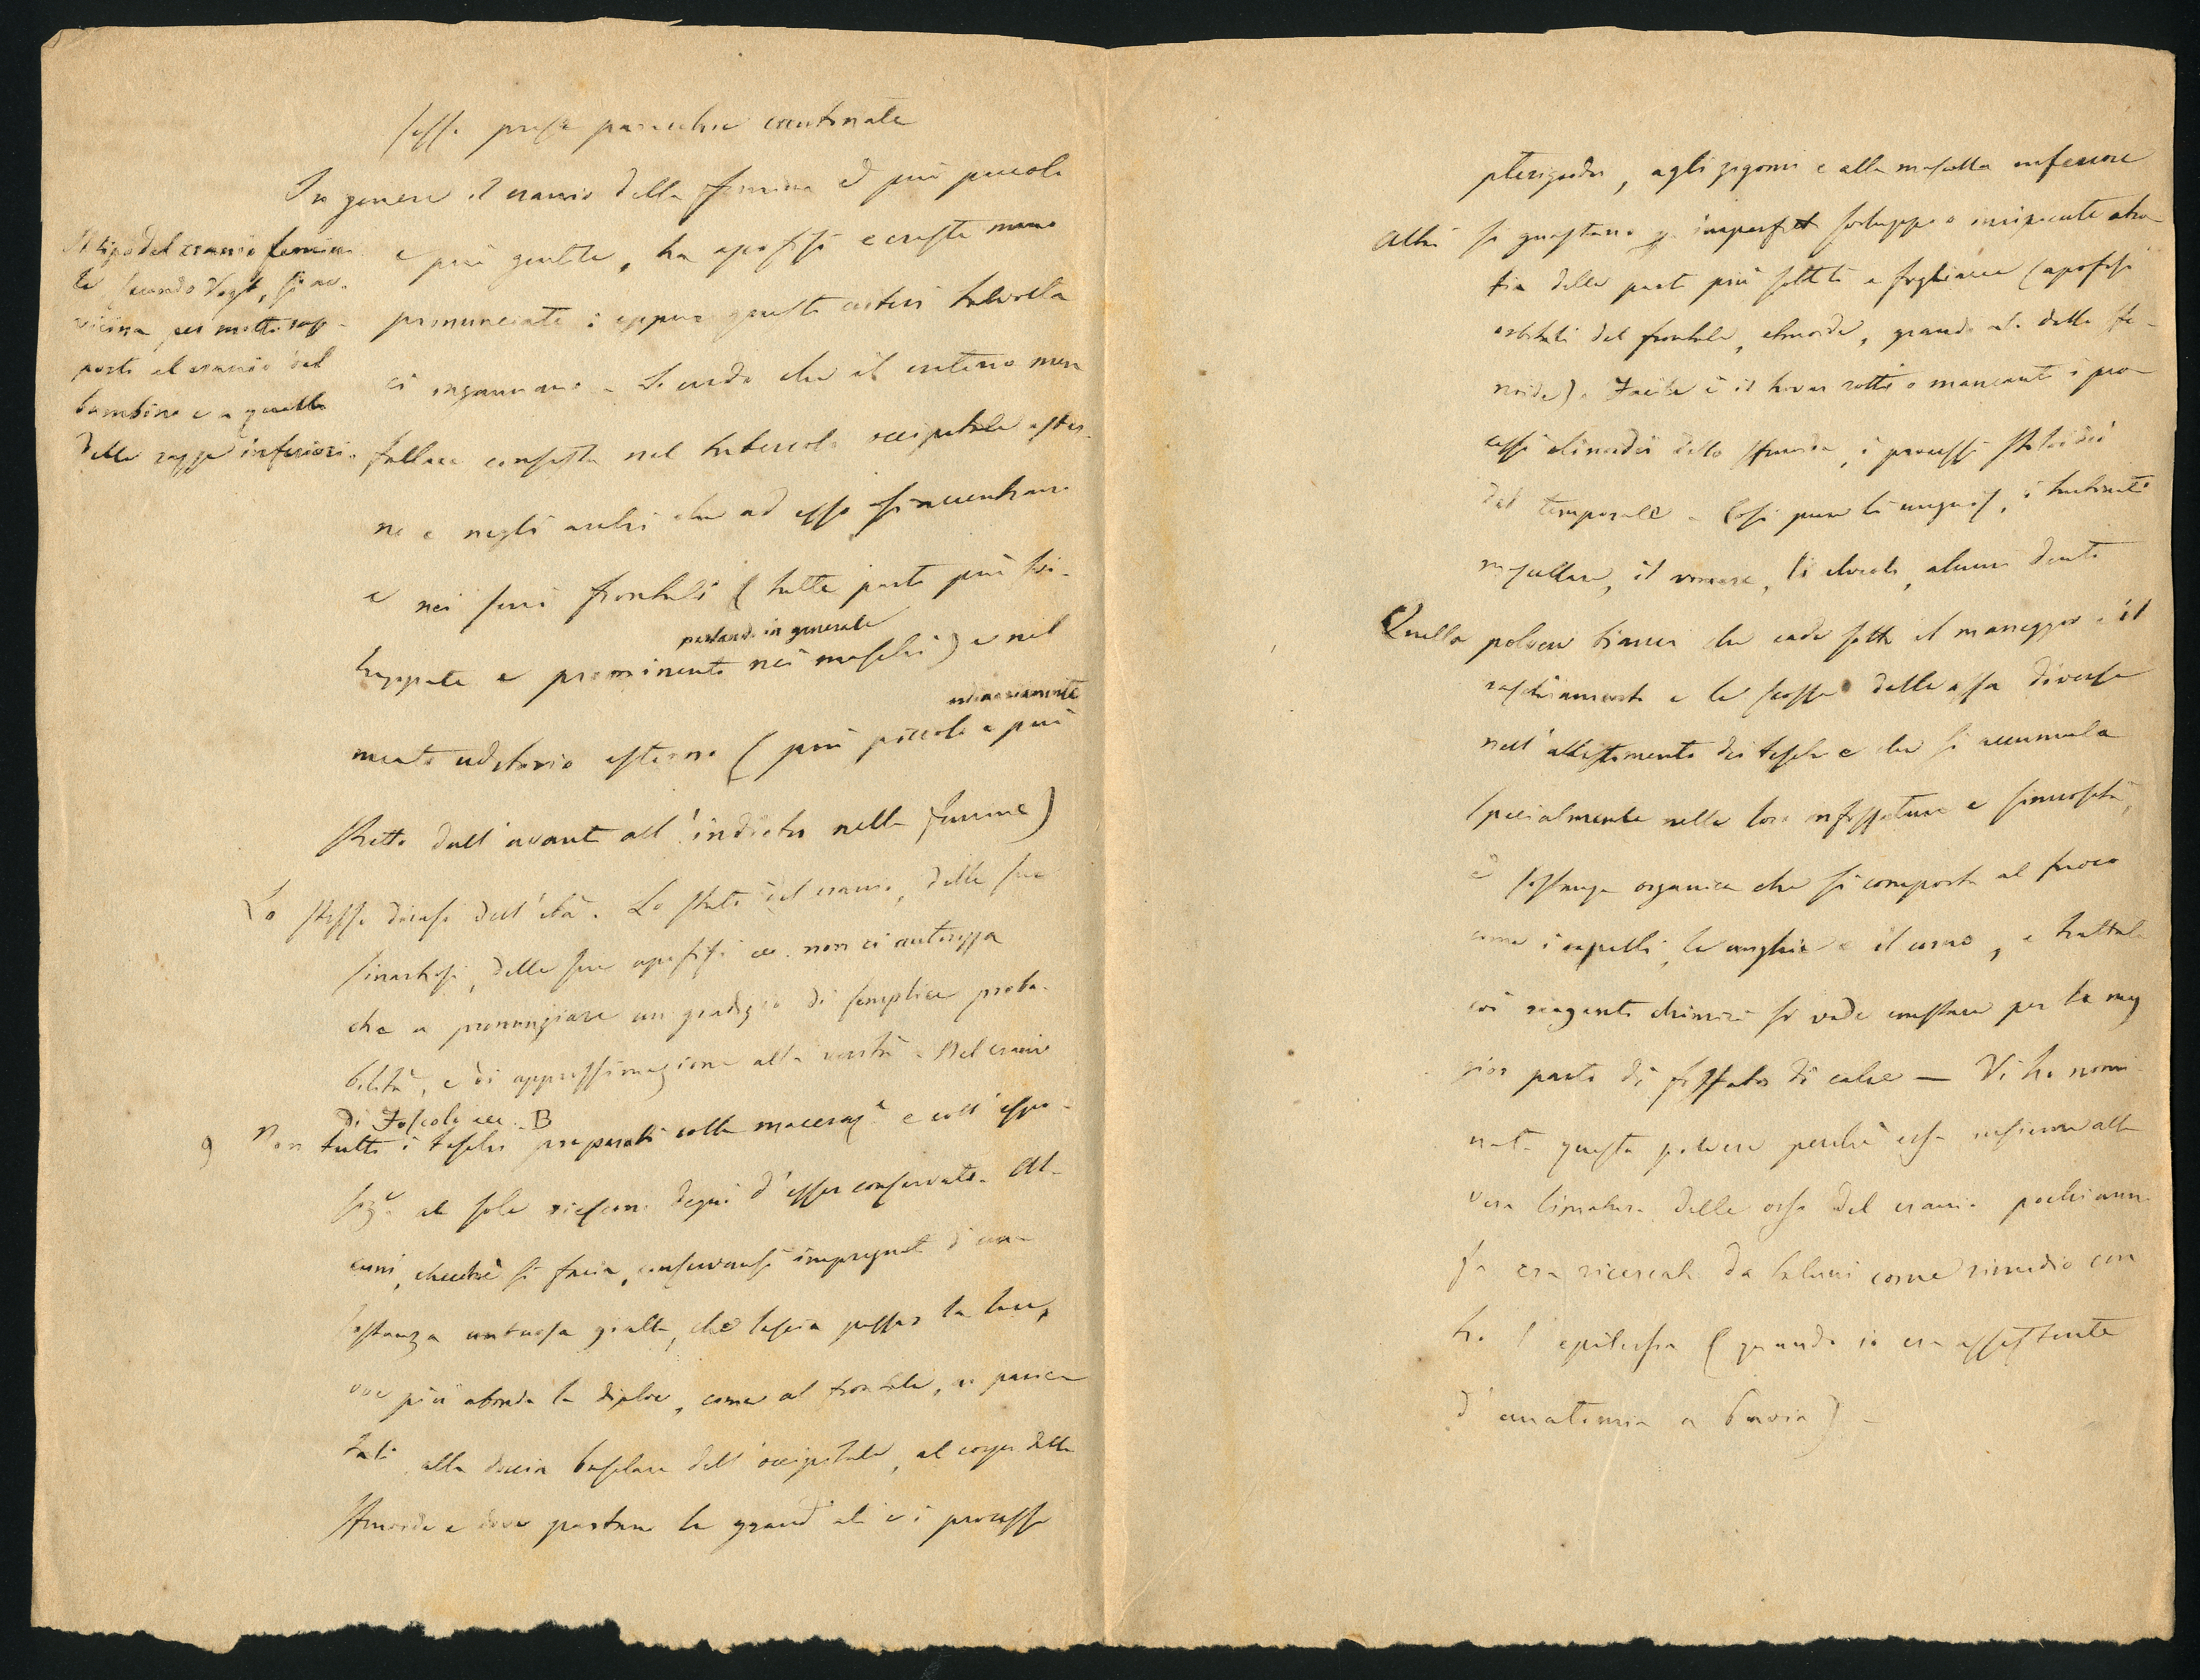 In genere il cranio della femina è più piccolo
e più gentile, ha apofisi e creste meno
pronunciate: eppure questi criteri talvolta
ci ingannano. Si crede che il criterio men
fallace consista nel tubercolo occipitale ester-
no e negli archi che ad esso si accentrano
e nei seni frontali (tutte parti più svi-
luppate e prominenti parlando in generale nei maschi) e nel
meato uditorio esterno (più piccolo e più ordinariamente
stretto dall'avanti all'indietro nelle femine)
Il tipo del cranio femini-
le secondo Vogt, si av-
vicina per molti rap-
porti al cranio del
bambino e a quello
delle razze inferiori.
Lo stesso dicasi dell'età. Lo stato del cranio, delle sue
sinartrosi, delle sue apofisi ecc. non ci autorizza
che a pronunziare un giudizio di semplice proba-
bilità, e di approssimazione alla verità. Nel cranio
di Foscolo ecc. B
9 Non tutti i teschi preparati colla maceraz.e e coll'espo-
siz.e al sole riescono degni d'esser conservati. Al-
cuni, checchè si faccia, conservansi impregnati d'una
sostanza untuosa gialla, che lascia passar la luce,
ove più abonda la diploe, come al frontale, ai parie-
tali alla doccia basilare dell'occipitale, al corpo dello
sfenoide e dove partono le grandi ali e i processi
pterigoidei, agli zigomi e alla mascella inferiore
Altri si guastano p. imperfetto sviluppo o incipiente atro-
fia delle parti più sottili e fogliacee (apofisi
orbitali del frontale, etmoide, grandi ali dello sfe-
noide). Facile è il trovar rotti o mancanti i pro-
cessi clinoidei dello sfenoide, i processi stiloidei
del temporale. Così pure li unguis, i turbinati
mascellari, il vomere, li alveoli, alcuni denti
Quella polvere bianca che cade sotto il maneggio e il
raschiamento e le scosse delle ossa diverse
nell'allestimento dei teschi e che si accumula
specialmente nelle loro infossature e sinuosità,
è sostanza organica che si comporta al fuoco
come i capelli, le unghie e il corno, e trattata
coi reagenti chimici si vede constare per la mag
gior parte di fosfato di calce — Vi ho nomi-
nato questa polvere perchè essa insieme alla
vera limatura delle ossa del cranio pochi anni
fa era ricercata da taluni come rimedio con
tro l'epilessia (quando io era assistente
d'anatomia a Pavia).